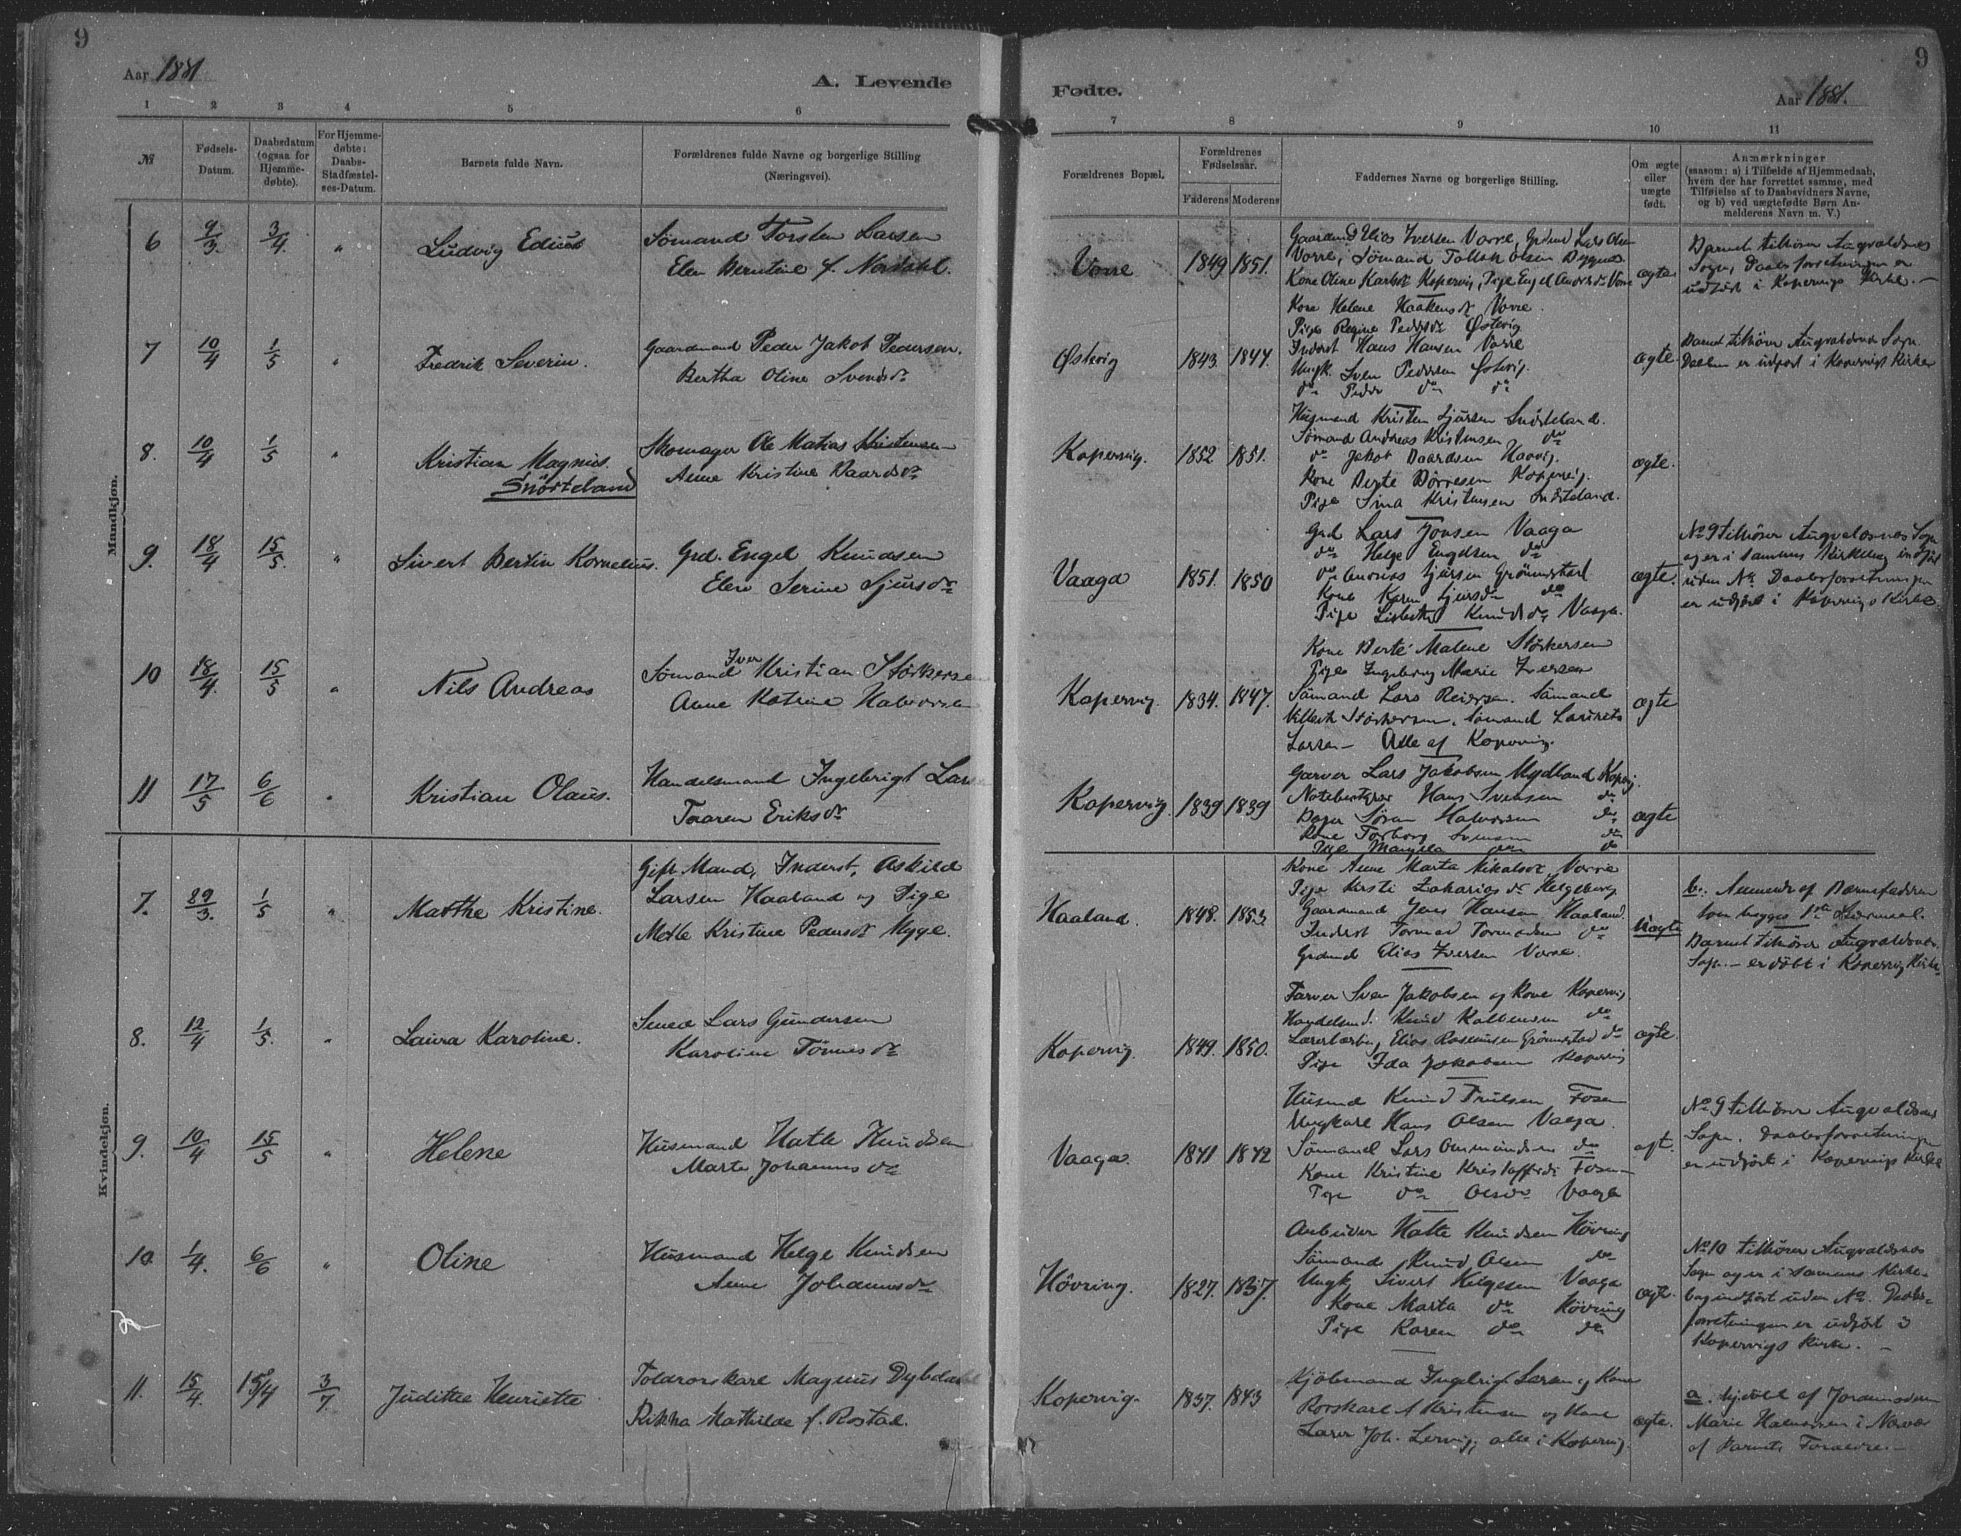 9
Aar 1881
A. Levende
1 2 3 4 5 6
№
Fødsels-
Datum.
Daabsdatum
(ogsaa for
Hjemme-
døbte).
For Hjemme-
døbte:
Daabs-
Stadfæstel-
ses-Datum.
Barnets fulde Navn.
Forældrenes fulde Navne og borgerlige Stilling
(Næringsvei).
Mandkjøn.
6 9/3. 3/4 " Ludvig Edius
Sømand Torsten Larsen
Elen Berntine f. Nordahl.
7 10/4 1/5 " Fredrik Severin.
Gaardmand Peder Jakob Pedersen.
Bertha Oline Svendsdr
8. 10/4 1/5 " Kristian Magnus.
Snørteland
Skomager Ole Matias Kristensen
Anne Kristine Baardsdr
9. 18/4 15/5. " Sivert Bertin Kornelius.
Grd. Engel Knudsen
Elen Serine Sjursdr
10 18/4. 15/5 " Nils Andreas
Iver
Sømand Kristian Størkersen
Anne Katrine Halvorsen
11 17/5 6/6 " Kristian Olaus.
Handelsmand Ingebrigt Lars
Taaren Eriksdr
Kvindekjøn.
7. 29/3. 1/5 " Marthe Kristine.
Gift Mand, Inderst, Askild
Larsen Haaland og Pige
Mette Kristine Pedersdr Mygge.
8. 12/4 1/5. " Laura Karoline.
Smed Lars Gundersen
Karoline Tønnesdr
9. 10/4 15/5 " Helene
Husmand Hatle Knudsen
Marte Johannesdr
10 1/4. 6/6 " Oline
Husmand Helge Knudsen
Anne Johannesdr
11. 15/4. 15/4 3/7. Judithe Henriette
Toldrorskarl Magnus Dybdahl
Rikka Mathilde f. Rostad.
9
Fødte.
Aar 1881.
7 8 9 10 11
Forældrenes Bopæl.
Forældrenes
Fødselsaar.
Faderens Moderens
Faddernes Navne og borgerlige Stilling.
Om ægte
eller
uægte
født.
Anmærkninger
(saasom: a) i Tilfælde af Hjemmedaab,
hvem der har forrettet samme, med
Tilføielse af to Daabsvidners Navne,
og b) ved uægtefødte Børn An-
melderens Navn m. V.)
Vorre 1849 1851.
Gaardmd Elias Iversen Vorre, Grdmd Lars Olsen
Vorre, Sømand Tollak Olsen Bygnes
Kone Oline Kopervig, Pige Engel Vorre
ægte
Barnet tilhører Augvaldsnes
Sogn, Daabsforretningen er
udført i Kopervigs Kirke. —
Østevig 1843. 1847.
Kone Helene Haakensdr Vorre.
Pige Regine Pedersdr Østevig
Inderst Hans Hansen Vorre
Ungk. Sven Pedersen Østevig.
do Peder do do
ægte.
Barnet tilhører Augvaldsnes Sogn
Daaben er udført i Kopervigs Kirke
Kopervig. 1852 1851.
Husmand Kristen Sjursen Snørteland.
Sømand Andreas Kristensen do
do Jakob Baardsen Haavig.
Kone Berte Børresen Kopervig.
Pige Sina Kristensen Snørteland.
ægte.
Vaaga 1851. 1850
Grd Lars Jonsen Vaaga
do Helge Engelsen do
do Andreas Sjursen Grønnestad
Kone Karen Sjursdr do
Pige Lisbeth Knudsdr, Vaaga.
ægte.
No 9 tilhører Augvaldsnes Sogn
og er i sammes Kirkebog indført
uden No. Daabsforretningen
er udført i Kopervigs Kirke.
Kopervig. 1834. 1847.
Kone Berte Malene Størkersen
Pige Ingeborg Marie Iversen
Sømand Lars Reiersen. Sømand
Størkersen, Sømand Laurits
Larsen — Alle af Kopervig.
ægte
Kopervig 1839 1839
Garver Lars Jakobsen Mydland Kopervig.
Hans Svensen do
Søren Halvorsen do
Kone Torborg Svensen do
Pige do do
ægte
Haaland. 1848. 1853.
Kone Anne Marta Nikolsdr, Vorre
Pige Kirsti Zakariasdr Helgeberg
Gaardmand Jens Hansen Haaland.
Inderst Tormod Tormodsen do
Grdmd Elias Iversen Vorre.
Uægte
b. Anmeldt af Barnefaderen
som begges 1ste Leiermaal.
Barnet tilhører Augvaldsnes
Sogn. — er døbt i Kopervig Kirke.
Kopervig. 1849. 1850.
Farver Sven Jakobsen og Kone Kopervig
Handelsmd. Knud Kolbensen do
Elias Rasmussen Grønnestad do
Pige Ida Jakobsen Kopervig
ægte.
Vaaga. 1841 1842
Husmd Knud Trulsen Fosen
Ungkarl Hans Olsen Vaaga.
Sømand Lars Ommundsen do
Kone Kristine Fosen
Pige do Olsdr Vaaga
ægt.
No 9 tilhører Augvaldsnes
Sogn. Daabsforretningen
er udført i Kopervigs Kirke
Høvring. 1827. 1837.
Arbeider Hatle Knudsen Høvring
Sømand Knud Olsen do
Ungk Sivert Helgesen Vaaga
Kone Marta do Høvring
Pige Karen do do
ægte.
No 10 tilhører Augvaldsnes
Sogn og er i sammes Kirke-
bog indført uden No. Daabs-
forretningen er udført i
Kopervigs Kirke. —
Kopervig. 1837. 1843
Kjøbmand Ingebrigt Larsen og Kone
Rorskarl A Kristensen og Kone
Lærer Joh. Lervig, alle i Kopervig.
ægte.
a. hjdøbt af Jordemoderen
Marie Halvorsen i Nærvær
af Barnets Forældre. —